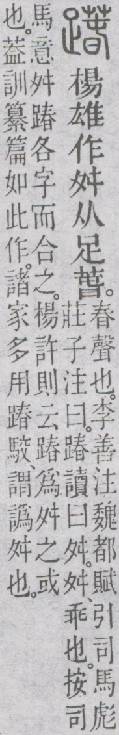 踳楊雄作舛从足萅。
春聲也。李善注魏都賦、引司馬彪
莊子注曰。踳讀曰舛。舛、乖也。按司
馬意舛踳各字而合之。楊許則云踳爲舛之或
也。葢訓纂篇如此作。諸家多用踳駁、謂譌舛也。